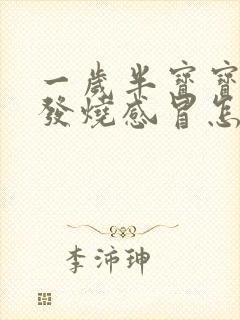 一歲半寶寶
發燒感冒怎
李沛珅